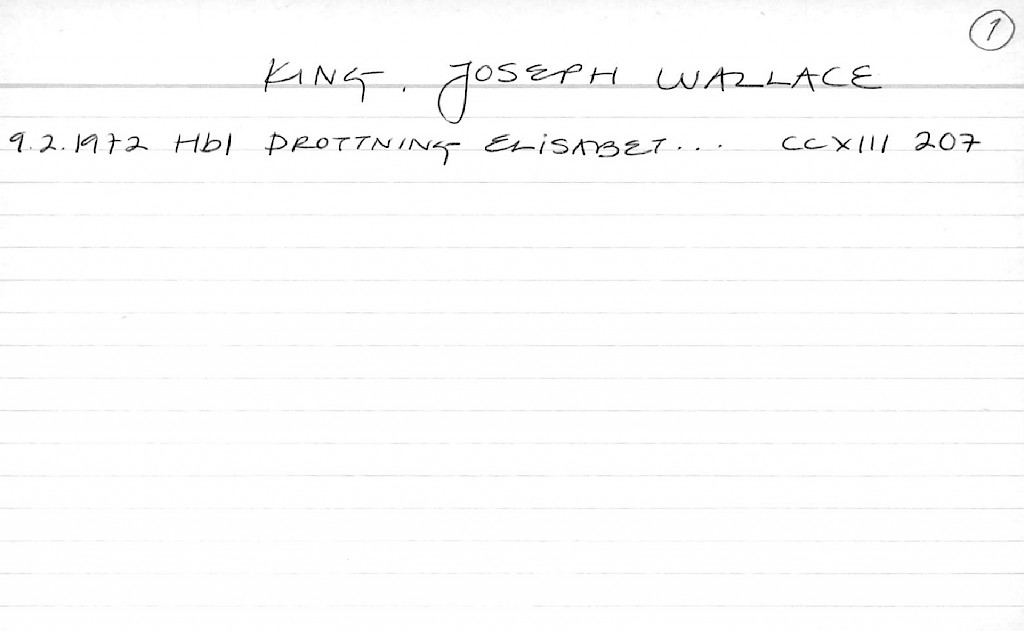 1
KING, JOSEPH WALLACE
9.2.1972 Hbl DROTTNING ELISABET... CCXIII 207